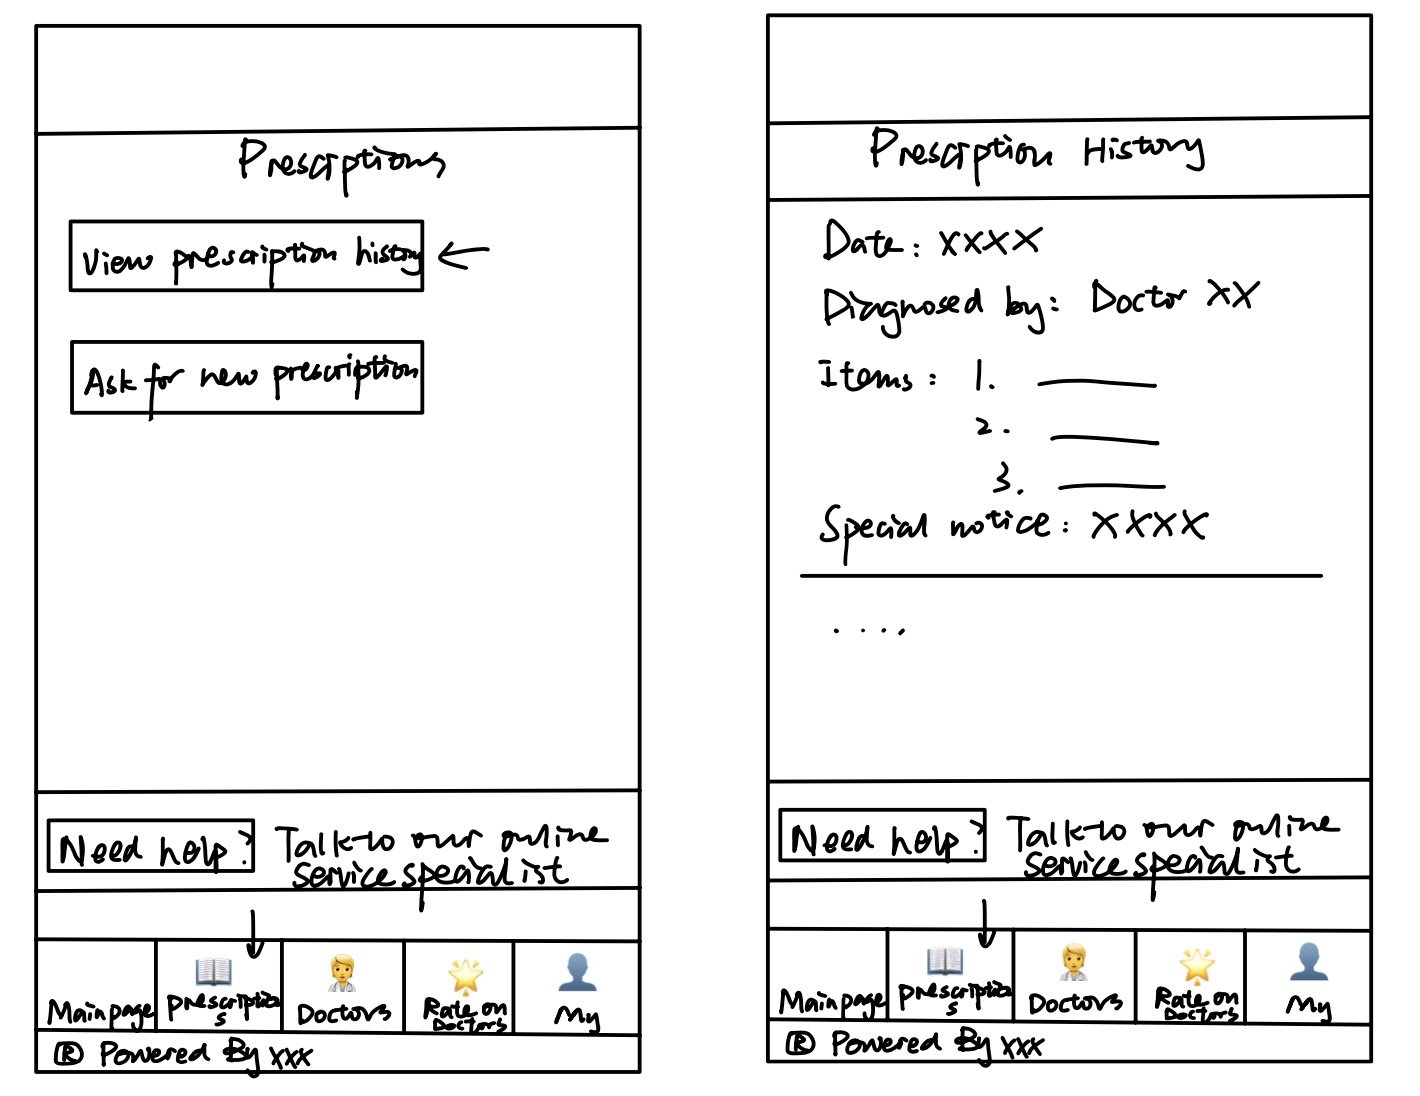 Prescriptions
View prescription history
Ask for new prescription
Need help?
Talk to our online
service specialist
Main page
Prescription
s
Doctors
Rate on
Doctors
My
® Powered By xxx
Prescription History
Date: XXXX
Diagnosed by: Doctor XX
Items: 1.
2.
3.
Special notice: XXXX
....
Need help?
Talk to our online
service specialist
Main page
Prescription
s
Doctors
Rate on
Doctors
My
® Powered By xxx